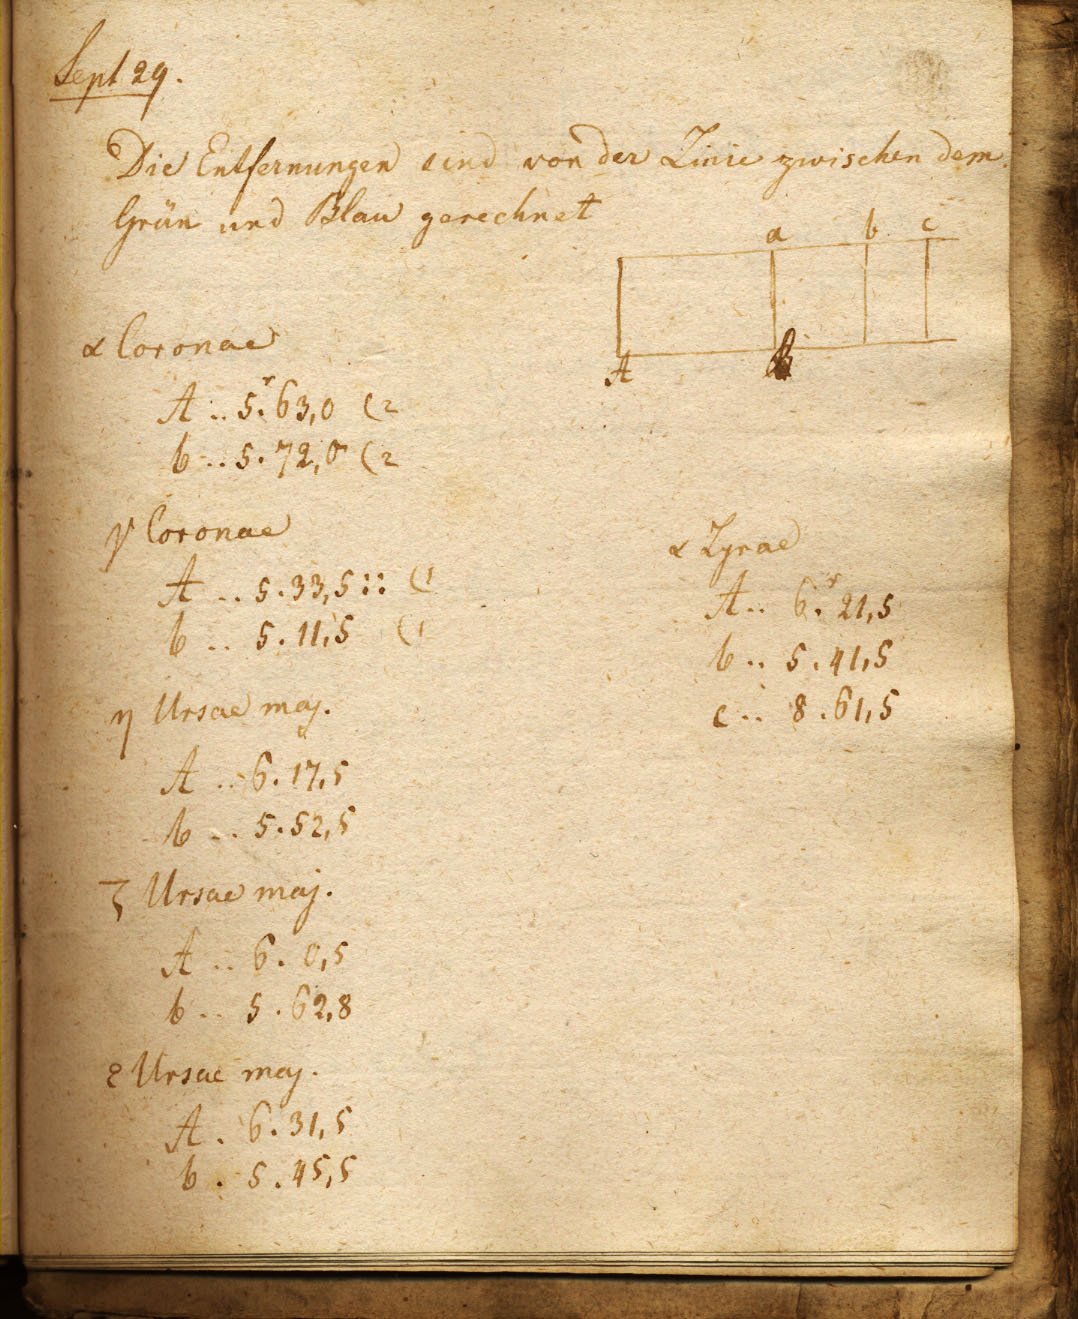 Sept 29.
Die Entfernungen sind von der Linie zwischen dem
Grün und Blau gerechnet
a b c
A
α Coronae
A .. 5.ʳ63,0 (2
b .. 5.72,0 (2
γ Coronae
A .. 5.33,5:: (1
b .. 5.11,5 (1
η Ursae maj.
A .. 6.17,5
b .. 5.52,5
ζ Ursae maj.
A .. 6. 0,5
b .. 5.62,8
ε Ursae maj.
A . 6.31,5
b . 5.45,5
α Lyrae
A .. 6.ʳ21,5
b .. 5.41,5
c .. 8.61,5